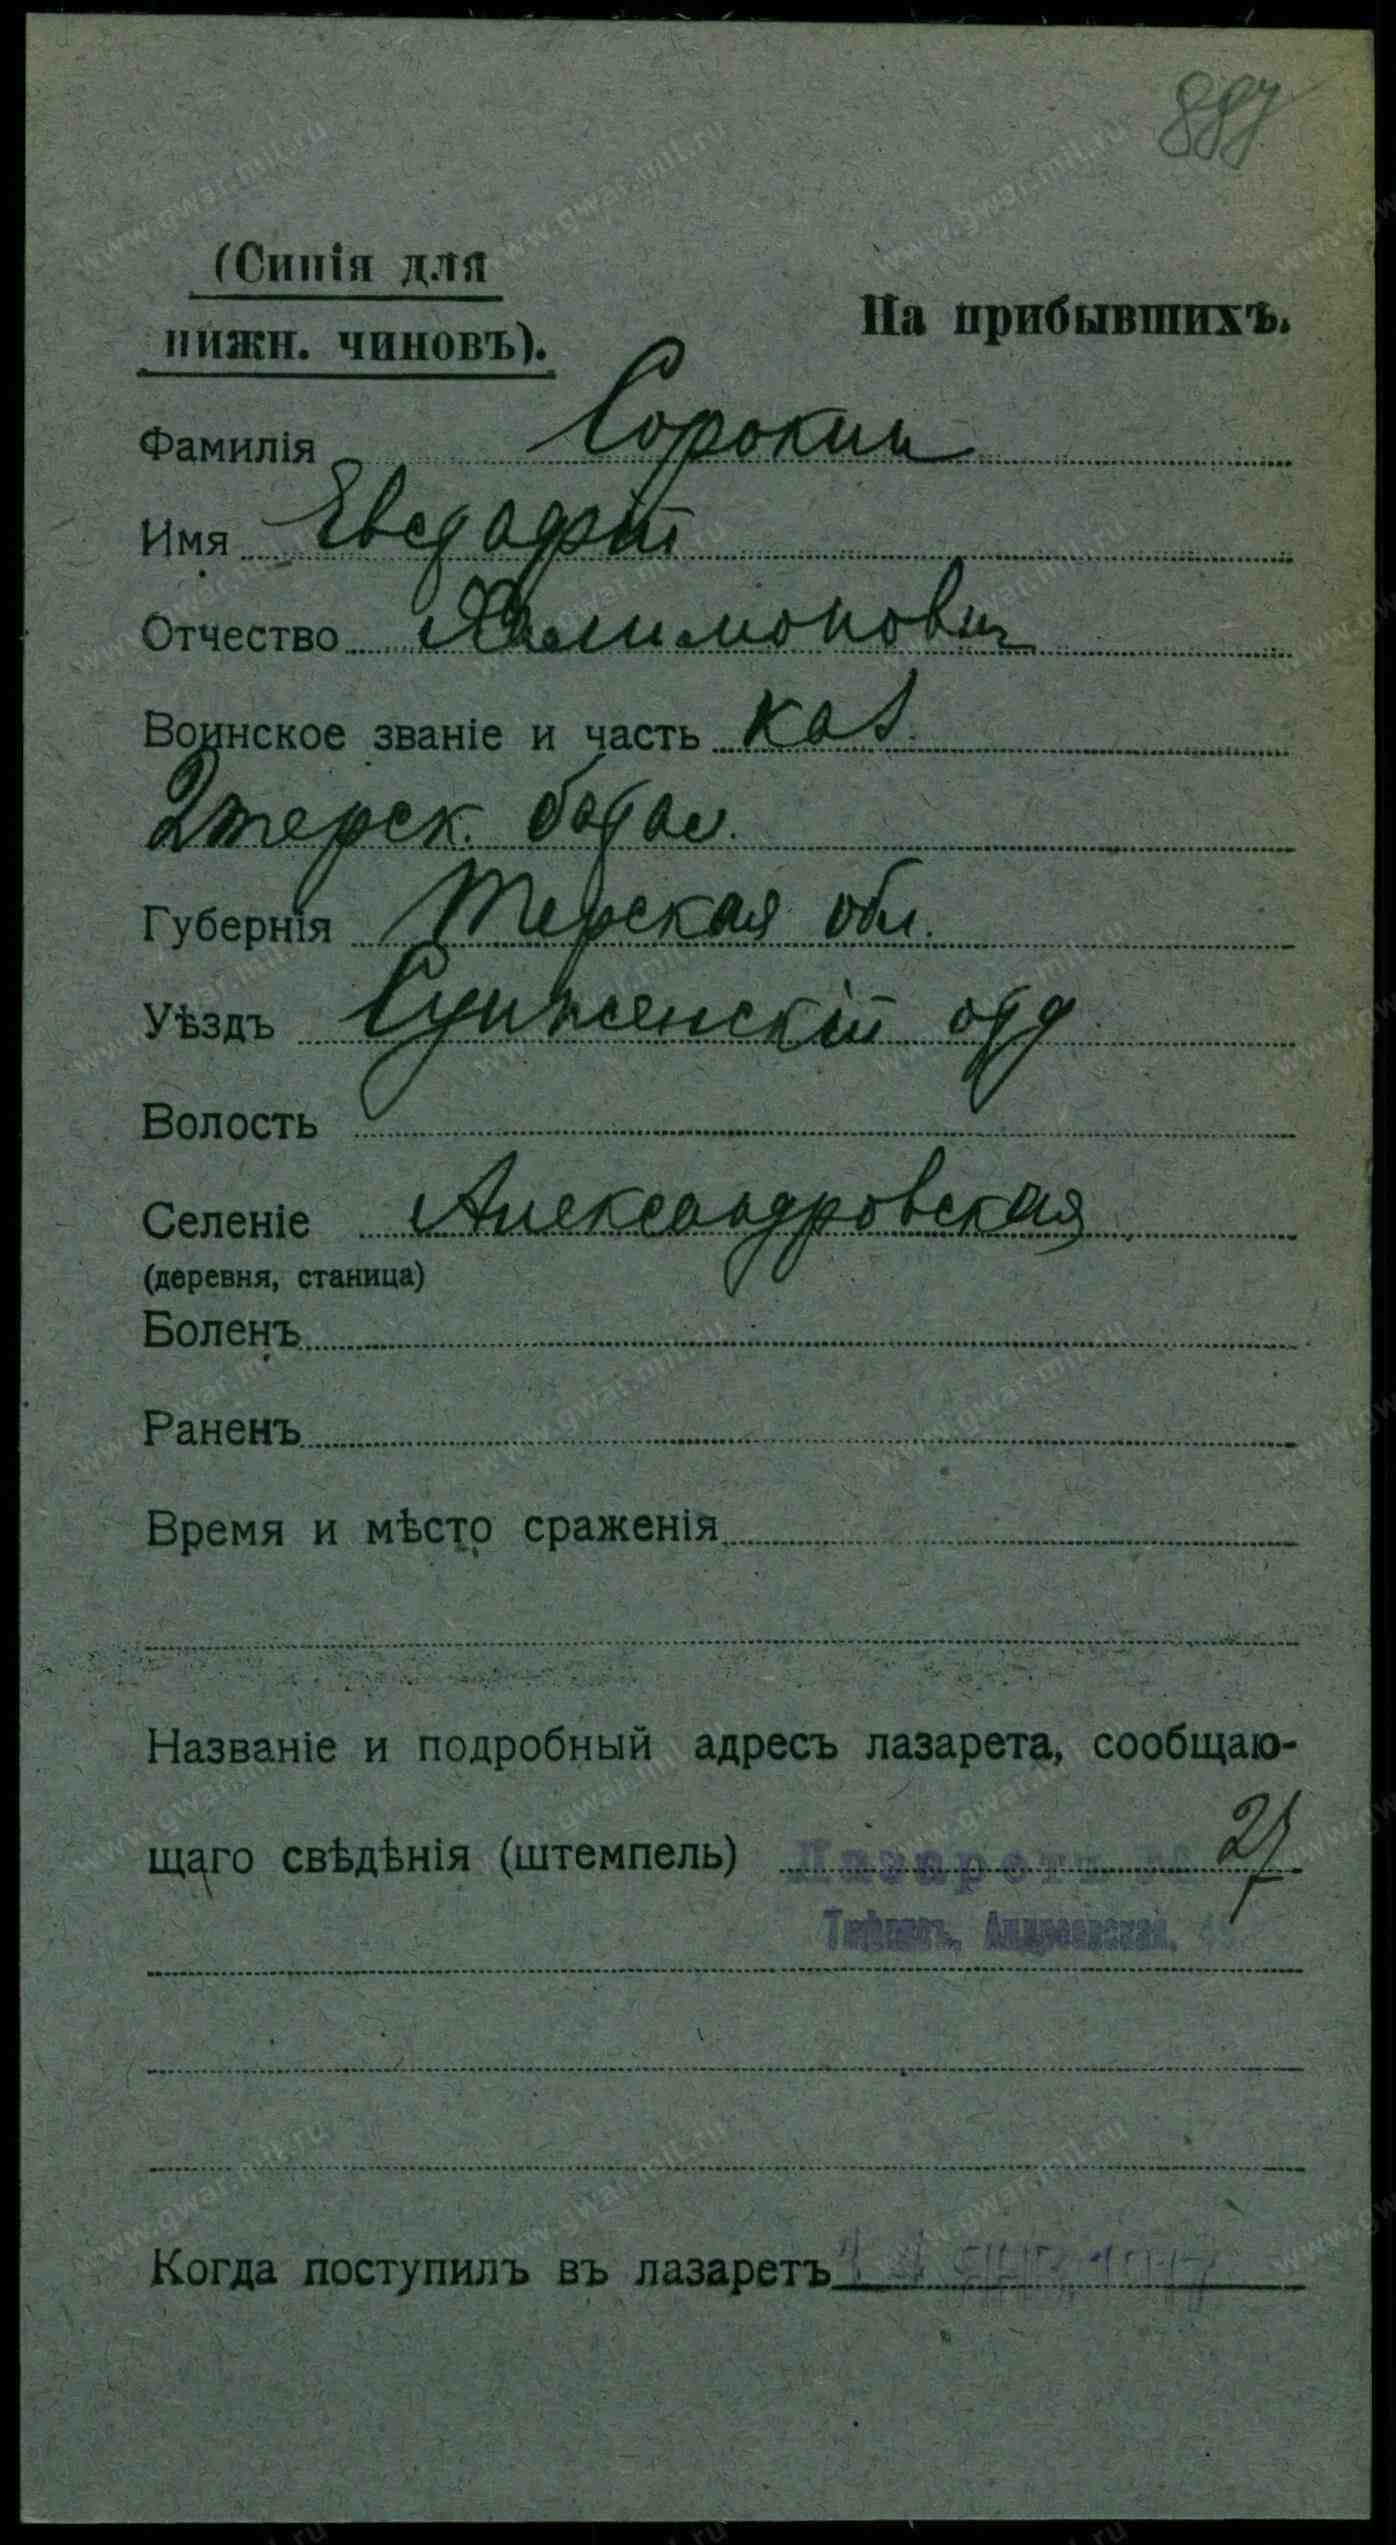 (Синія для
нижн. чиновъ).
На прибывшихъ.
Фамилія Сорокин
Имя
Отчество
Воинское званіе и часть каз.
2 терск. батал.
Губернія Терская обл.
Уѣздъ Сунженскій отд
Волость
Селеніе Александровская
(деревня, станица)
Боленъ
Раненъ
Время и мѣсто сраженія
Названіе и подробный адресъ лазарета, сообщаю-
щаго свѣдѣнія (штемпель) Лазаретъ №
Тифлисъ, Андреевская,
Когда поступилъ въ лазаретъ 14 ЯНВ 1917
www.gwar.mil.ru